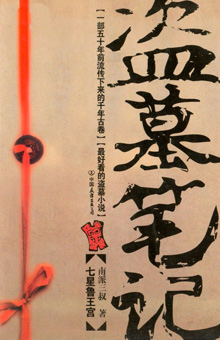 盗墓笔记
【一部五十年前流传下来的千年古卷】【最好看的盗墓小说】
南派三叔 著
七星鲁王宫